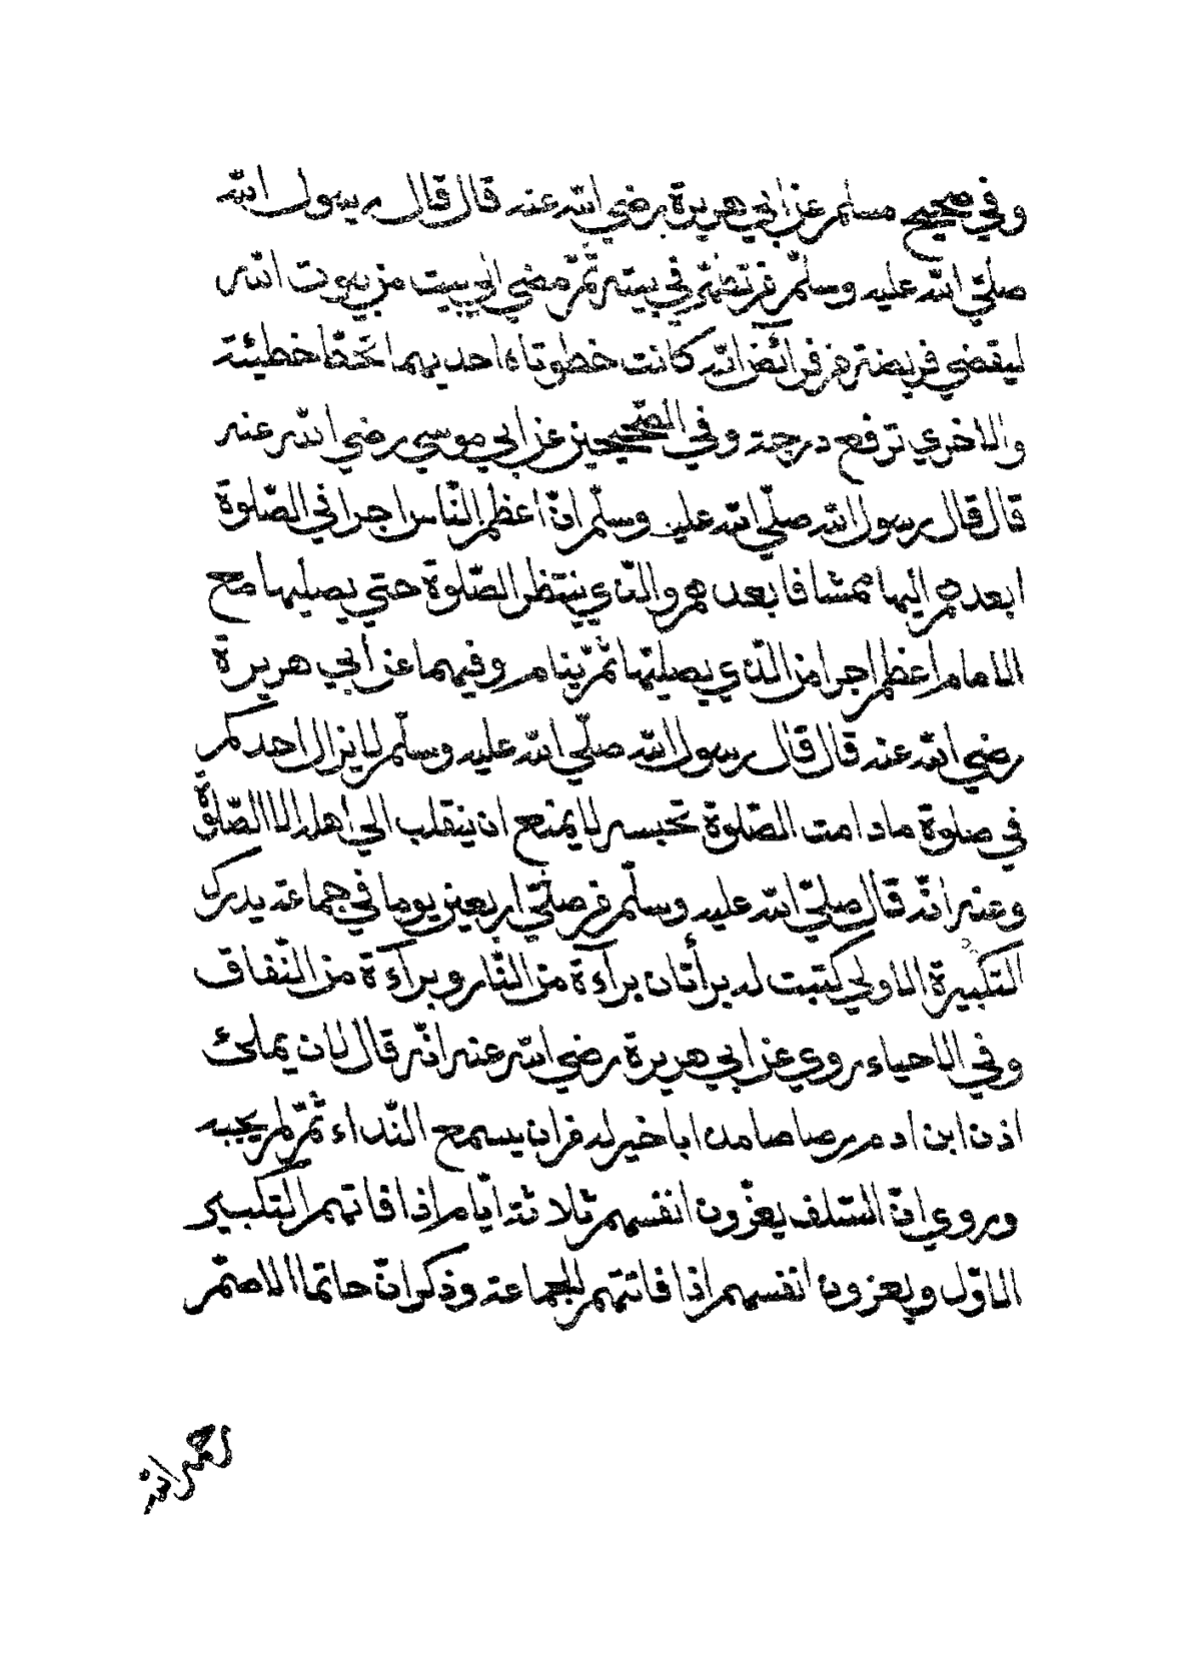 وفي صحيح مسلم عن ابي هريرة رضي الله عنه قال قال رسول الله
صلي الله عليه وسلم من تطهر في بيته ثم مضي الي بيت من بيوت الله
ليقضي فريضة من فرآئض الله كانت خطوتاه احديهما تحط خطيئة
والاخري ترفع درجة وفي الصحيحين عن ابي موسي رضي الله عنه
قال قال رسول الله صلي الله عليه وسلم ان اعظم الناس اجرا في الصلوة
ابعدهم اليها ممشا فابعدهم والذي ينتظر الصلوة حتي يصليها مع
الامام اعظم اجرا من الذي يصليها ثم ينام وفيهما عن ابي هريرة
رضي الله عنه قال قال رسول الله صلي الله عليه وسلم لايزال احدكم
في صلوة مادامت الصلوة تحبسه لايمنع ان ينقلب الي اهله الا الصلوة
وعنه انه قال صلي الله عليه وسلم من صلي اربعين يوما في جماعة يدرك
التكبيرة الاولي كتبت له برأتان برآءة من النار وبرآءة من النفاق
وفي الاحياء روي عن ابي هريرة رضي الله عنه انه قال لان يملئ
اذن ابن ادم رصاصا مذابا خير له من ان يسمع النداء ثم لم يجبه
وروي ان السلف يعزون انفسهم ثلاثة ايام اذا فاتهم التكبير
الاول ويعزون انفسهم اذا فاتتهم الجماعة وذكر ان حاتما الاصم
رحمه الله